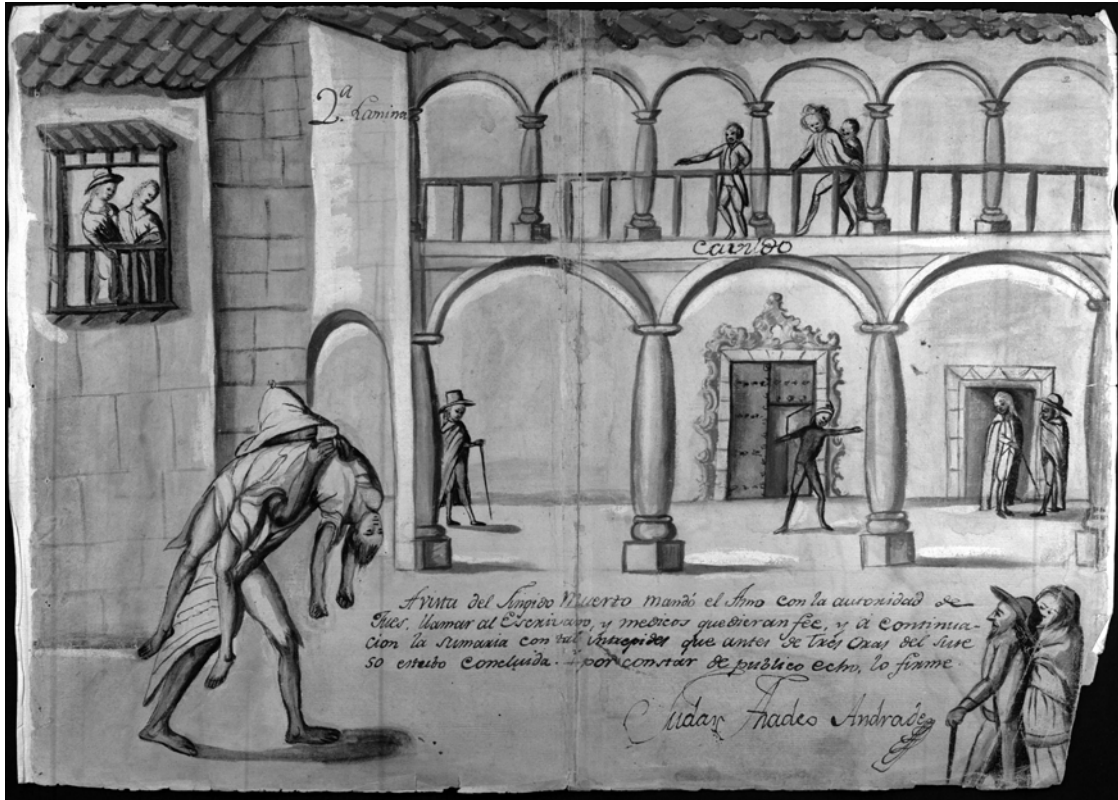 2.ª Lamina
Cavildo
A vista del fingido Muerto mandó el Amo con la autoridad de
Jues, llamar al Escrivano, y medicos que dieran feé, y á continua-
cion la sumaria con tal intrepides que antes de tres oras del suce
so estubo concluida. y por constar de publico echo, lo firme.
Judas Thadeo Andrade